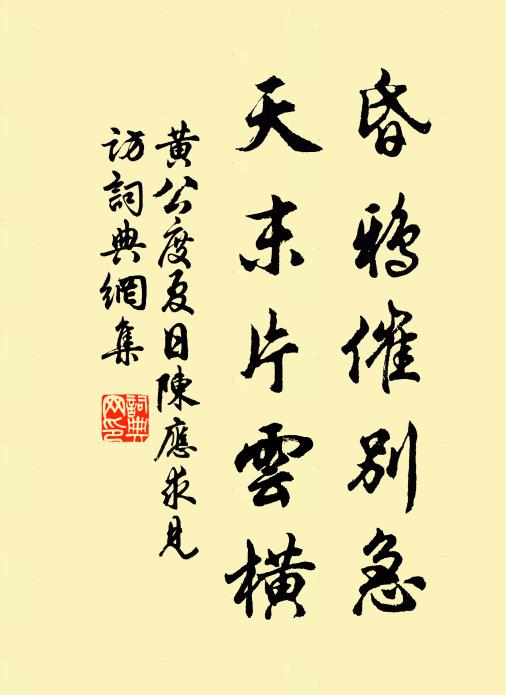 昏鴉催別急
天末片雲橫
黃公度夏日陳應求見
訪詞典網集
詞典
网印